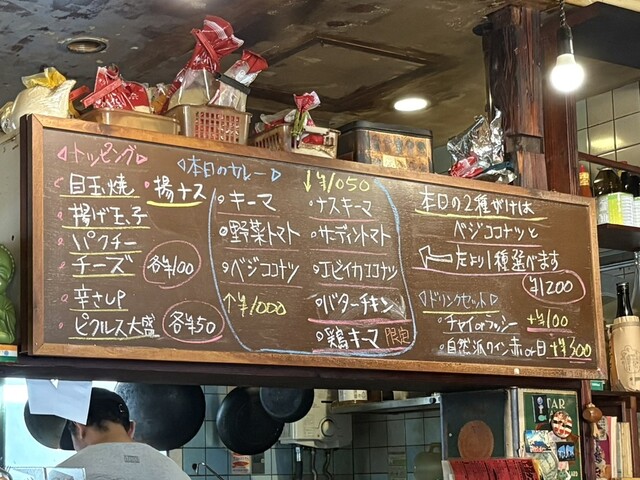 ◁トッピング▷
・目玉焼
・揚ナス
・揚げ玉子
・パクチー
・チーズ
各¥100
・辛さup
・ピクルス大盛
各¥50
◁本日のカレー▷
・キーマ
・野菜トマト
・ベジココナツ
↑¥1000
↓¥1050
・ナスキーマ
・サーディントマト
・エビイカココナツ
・バターチキン
・鶏キーマ 限定
本日の2種がけは
ベジココナツと
⇦ たより1種選べます
¥1200
◁ドリンクセット▷
・チャイorラッシー +¥100
・自然派ワイン赤or白 +¥300